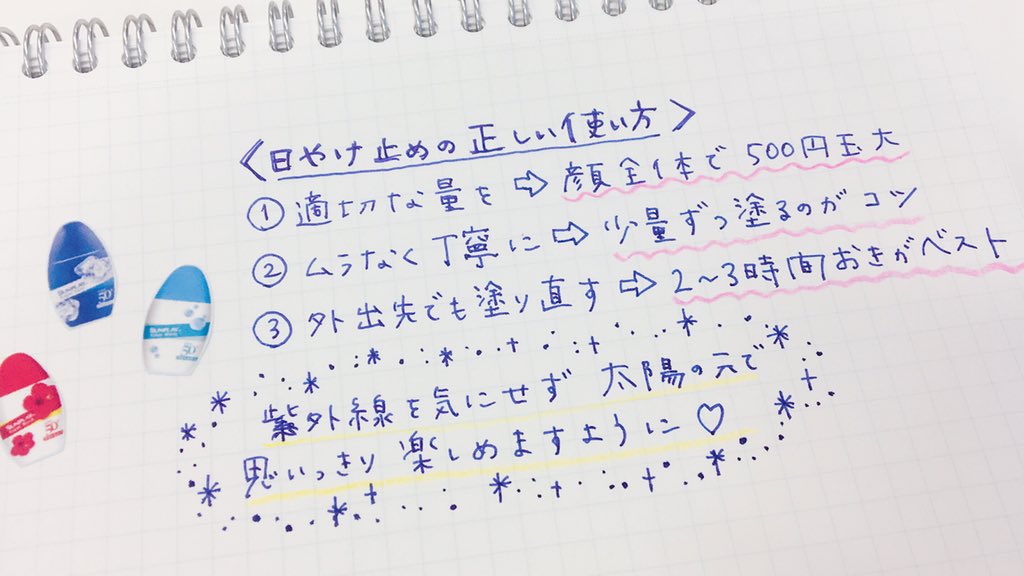 <日やけ止めの正しい使い方>
① 適切な量を ⇨ 顔全体で500円玉大
② ムラなく丁寧に ⇨ 少量ずつ塗るのがコツ
③ 外出先でも塗り直す ⇨ 2〜3時間おきがベスト
紫外線を気にせず 太陽の元で
思いっきり 楽しめますように♡
SUNPLAY
SUNPLAY
SUNPLAY